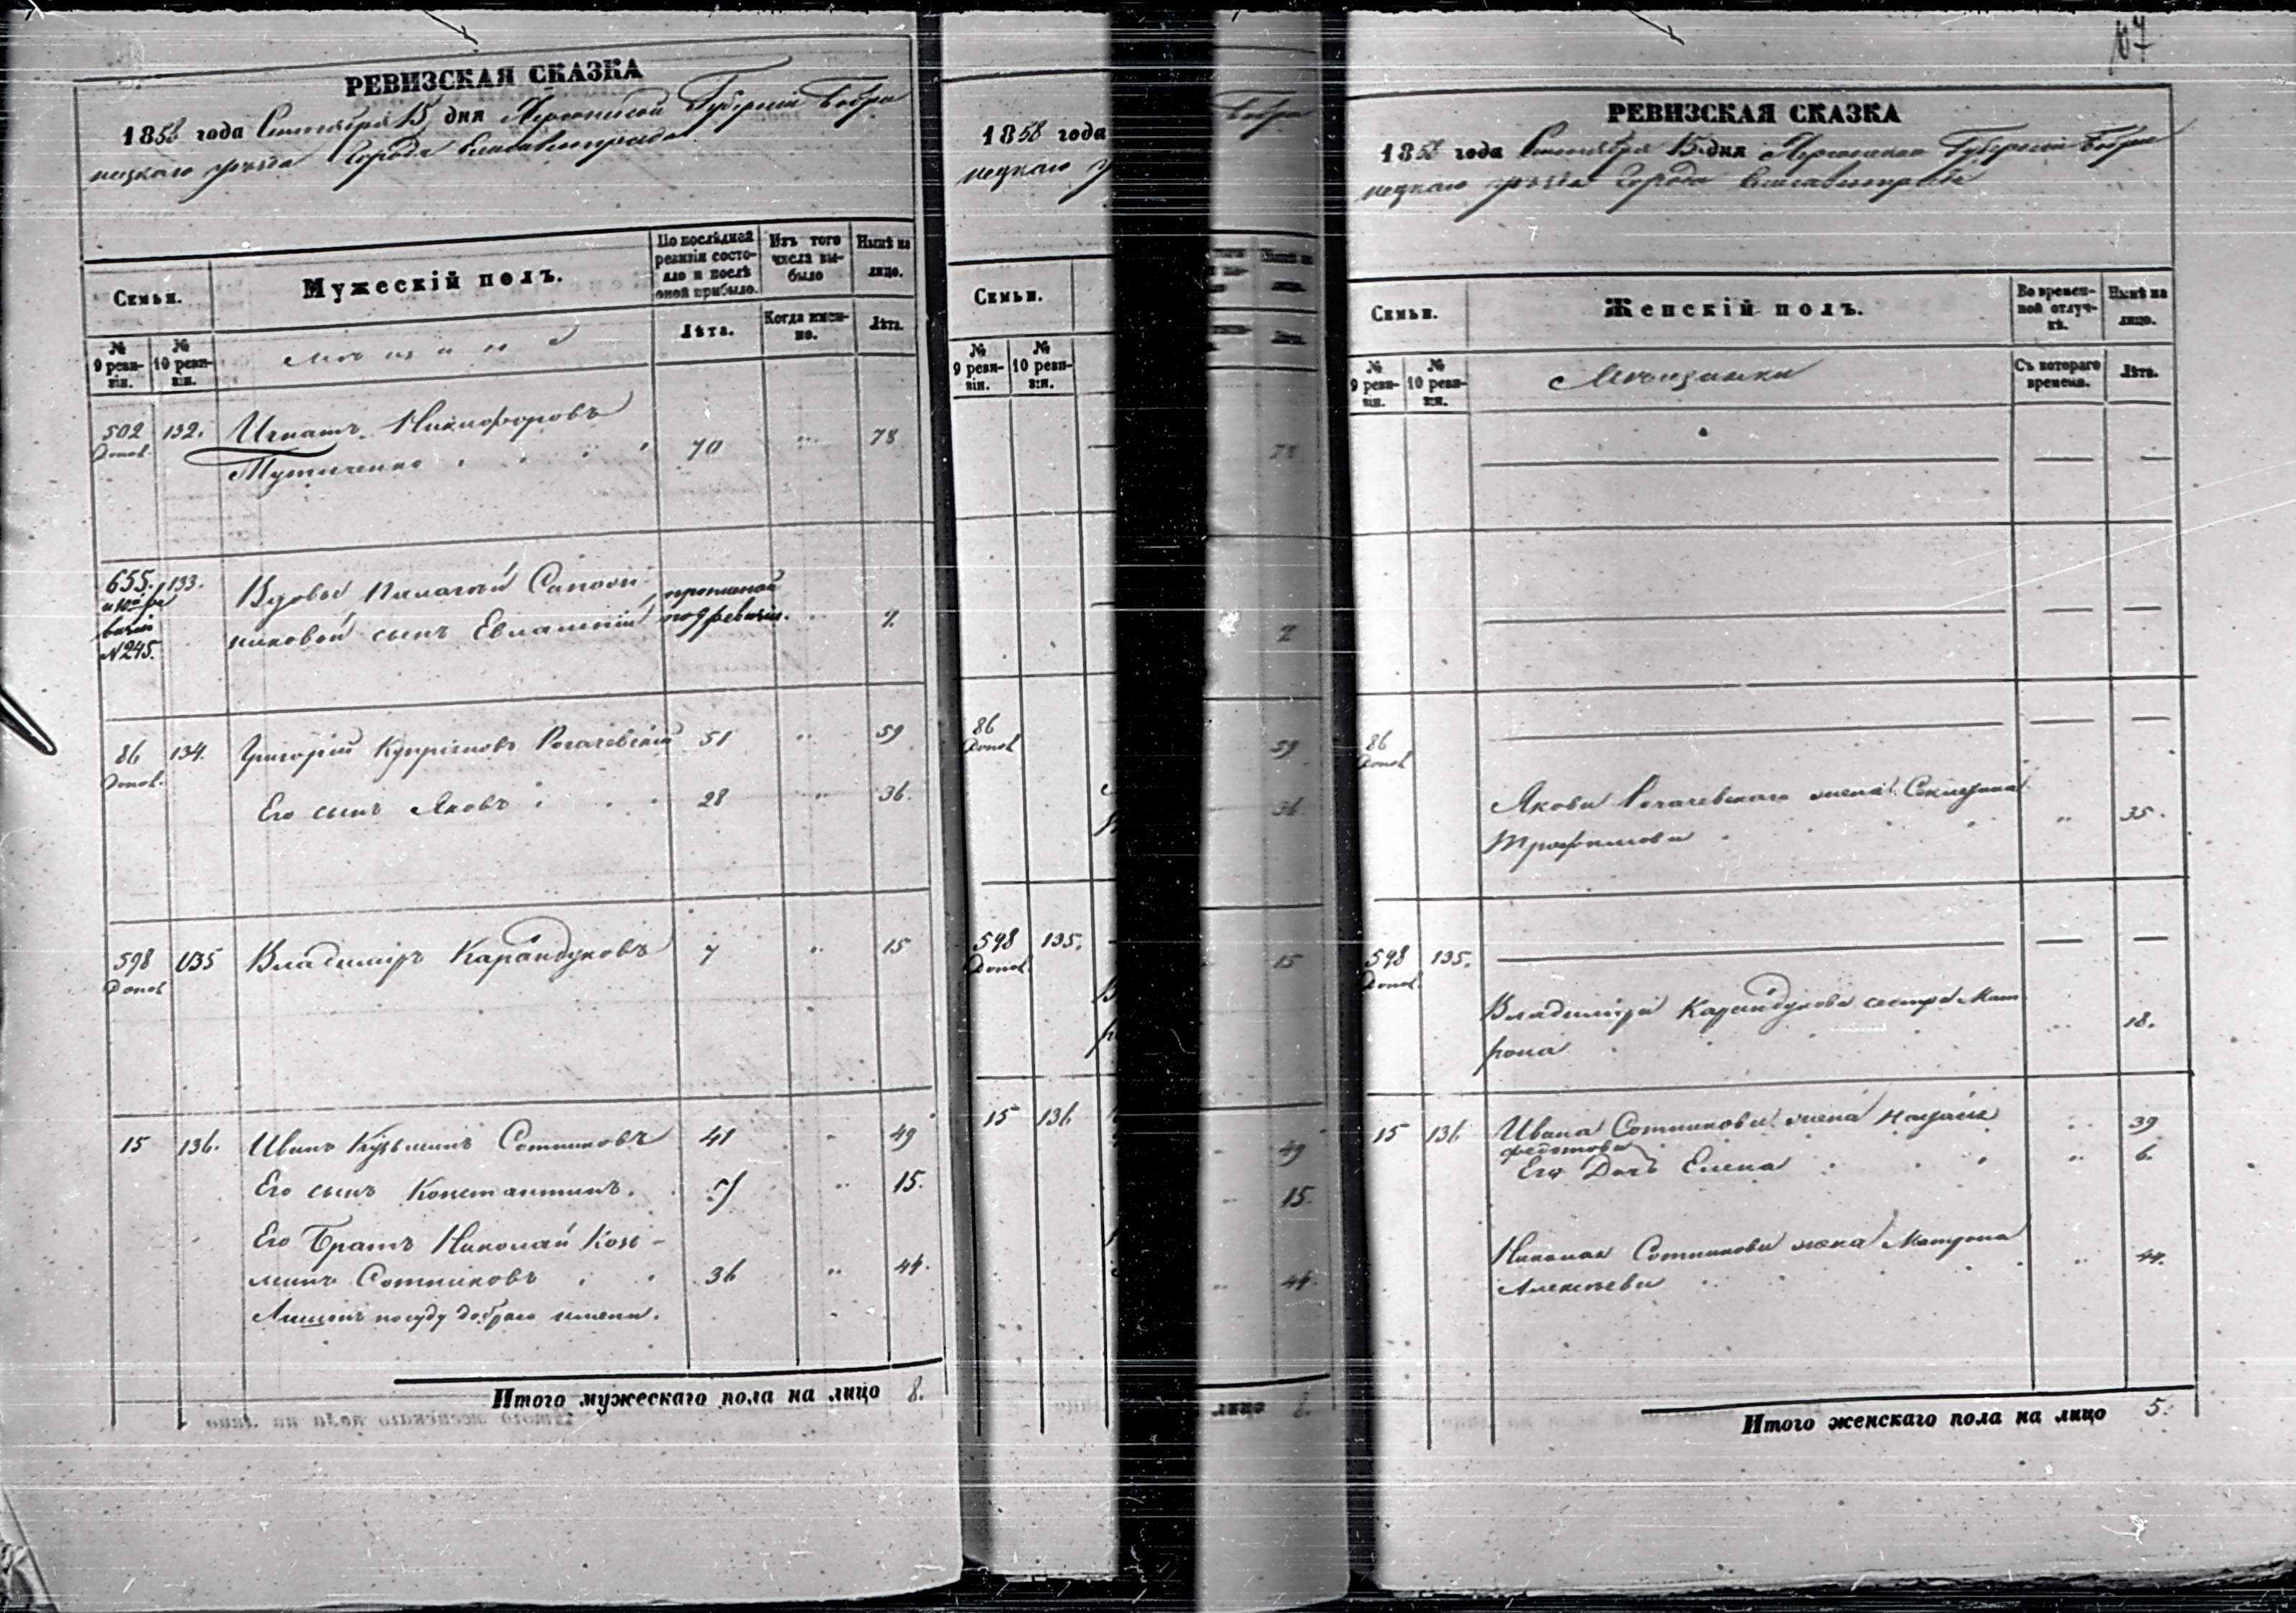 РЕВИЗСКАЯ СКАЗКА
1858 года Сентября 15 дня Херсонской Губерніи Бобри
нецкаго уѣзда Города Елисаветграда
Семьи.
Мужескій полъ.
По послѣдней ревизіи состо-
яло и послѣ
оной прибыло.
Изъ того
числа вы-
было
Нынѣ на
лицо.
№
9 реви-
зіи.
№
10 реви-
зіи.
Мѣщане
Лѣта.
Когда имен-
но.
Лѣта.
502 132. Игнатъ Никифоровъ
Допол. 70 78
655. 133. Вдовы Пелагѣи
№ 245. сынъ Евлампій 7.
86 134. Григорій Купріяновъ Рогачевскій 51 59
Допол. Его сынъ Яковъ 28 36.
598 135 Владиміръ Карандуковъ 7 15
Допол
15 136. Иванъ Кузьминъ Сотниковъ 41 49
Его сынъ Константинъ. 15.
Его Братъ Николай Козь-
минъ Сотниковъ 36 44.
Лишенъ по суду добраго имени.
Итого мужескаго пола на лицо 8.
1858 года
нецкаго у
Семьи.
№
9 реви-
зіи.
№
10 реви-
зіи.
86
Допол
598 135.
Допол.
15 136
Бобри
59
36
15
49
15.
44.
лицо 8.
107
РЕВИЗСКАЯ СКАЗКА
1858 года Сентября 15 дня Херсонской Губерніи Бобри
нецкаго уѣзда Города Елисаветграда
Семьи.
Женскій полъ.
Во времен-
ной отлуч-
кѣ.
Нынѣ на
лицо.
№
9 реви-
зіи.
№
10 реви-
зіи.
Мѣщанки
Съ котораго
времени.
Лѣта.
86
Допол
Якова Рогачевскаго жена
Трофимова 35.
598 135.
Допол.
Владиміра Карандукова сестра Мат
рона 18.
15 136 Ивана Сотникова жена 39
Федотова
Его Дочь Елена 6.
Николая Сотникова жена Матрона
Алексѣева 44.
Итого женскаго пола на лицо 5.